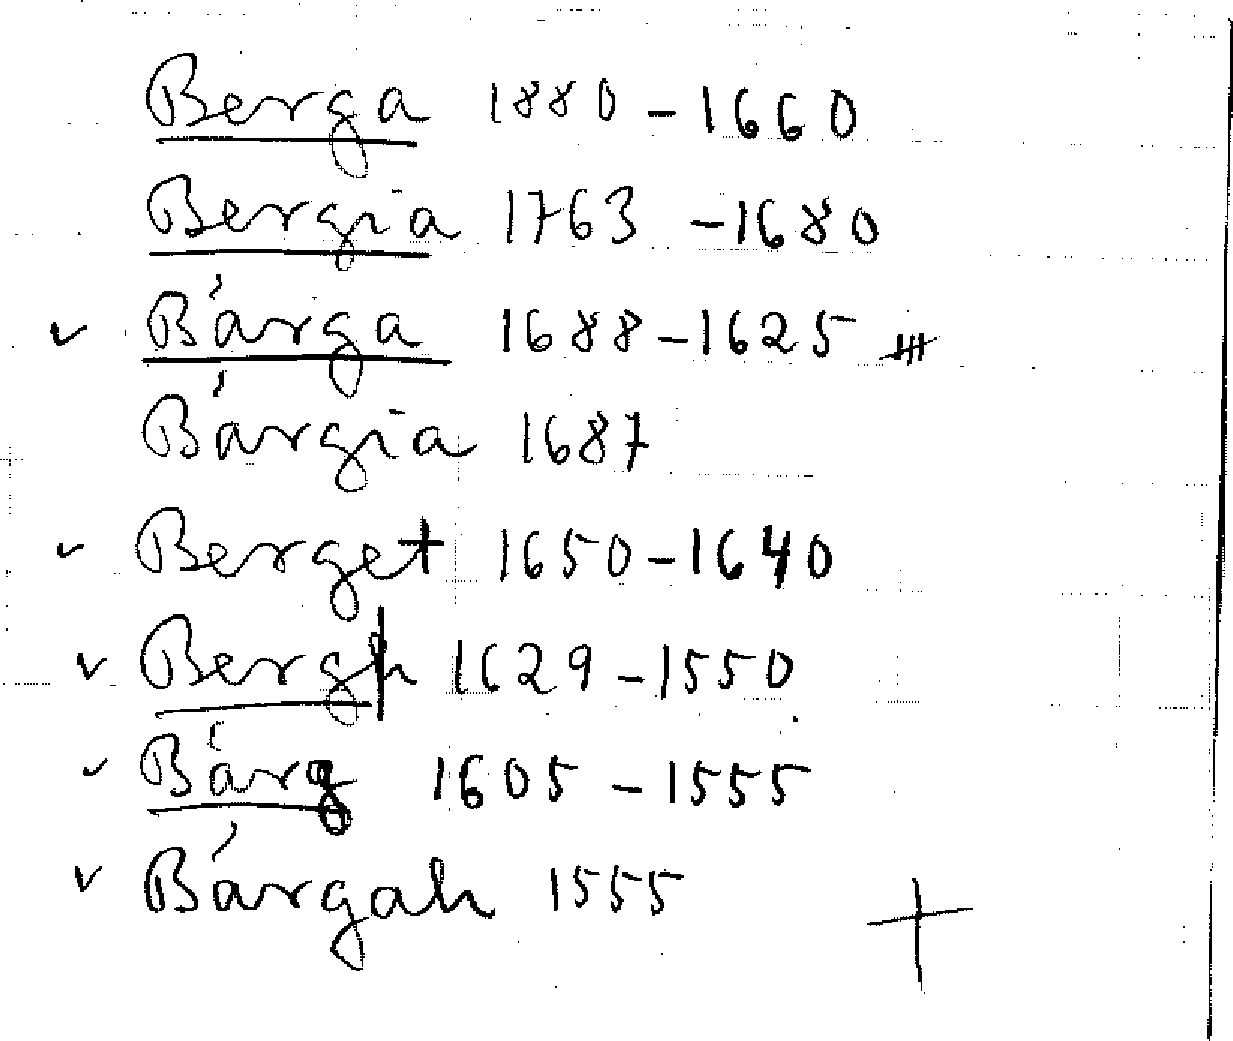 Berga 1880-1660
Bergia 1763-1680
✓ Bárga 1688-1625
Bárgia 1687
✓ Berget 1650-1640
✓ Bergh 1629-1550
✓ Bárg 1605-1555
✓ Bárgah 1555